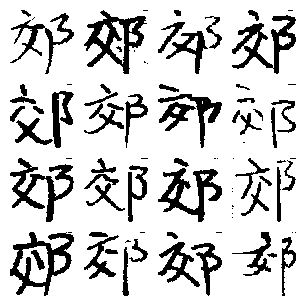 郊郊郊郊
郊郊郊郊
郊郊郊郊
郊郊郊郊